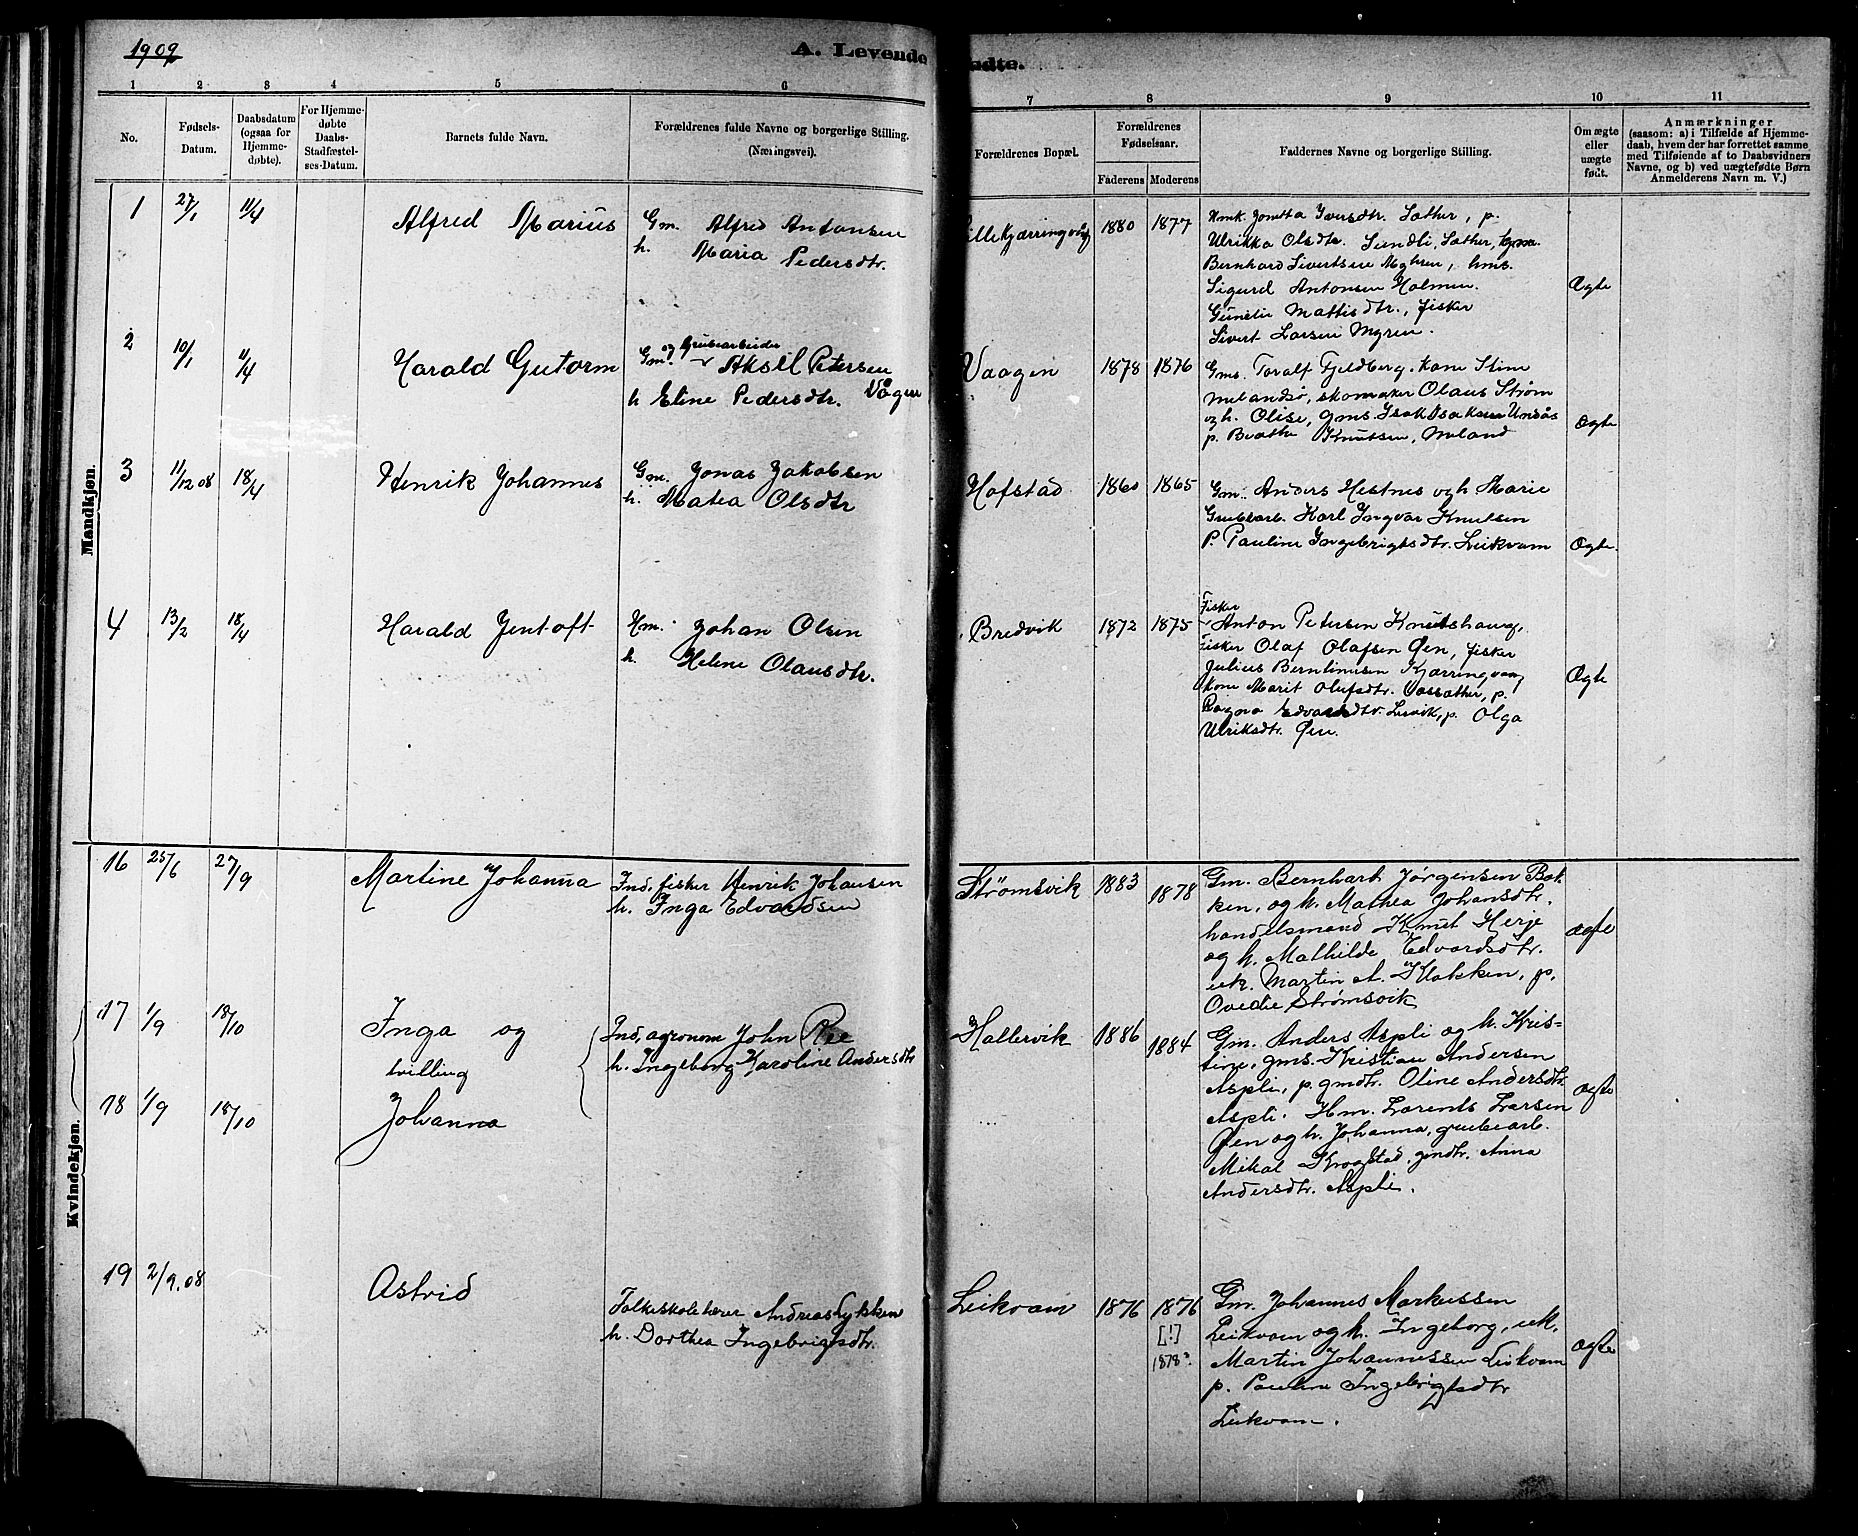 1909
A. Levende
ødte.
1 2 3 4 5 6 7 8 9 10 11
No.
Fødsels-
Datum.
Daabsdatum
(ogsaa for
Hjemme-
døbte).
For Hjemme-
døbte
Daabs-
Stadfæstel-
ses-Datum.
Barnets fulde Navn.
Forældrenes fulde Navne og borgerlige Stilling.
(Næringsvei).
Forældrenes Bopæl.
Forældrenes
Fødselsaar.
Faderens Moderens
Faddernes Navne og borgerlige Stilling.
Om ægte
eller
uægte
født.
Anmærkninger
(saasom: a) i Tilfælde af Hjemme-
daab, hvem der har forrettet samme
med Tilføiende af to Daabsvidners
Navne, og b) ved uægtefødte Børn
Anmelderens Navn m. V.)
Mandkjøn.
1 27/1 11/4
Alfred Marius
Gm. Alfred Antonsen
h. Maria Pedersdtr.
Lillekjærringvåg 1880 1877
Hmk. Jonetta Iversdtr. Sæther, p.
Ulrikka Olsdtr. Sundli, Sæther, kone
Bernhard Sivertsen Myhren, hms.
Sigurd Antonsen Holmen.
Gunelie Mattisdtr., fisker
Sivert Larsen Myren.
Ægte
2 10/1 11/4
Harald Gutorm
Gm. og grubearbeider
Aksel Petersen
h Eline Pedersdtr. Vågen
Vaagen 1878 1876
Gms. Toralf Fjeldberg, kone Stine
Melandsø, skomaker Olaus Strøm
og h. Olise, gms. Isak Isaksen Unsås
p. Beathe Knutsen, Meland
Ægte
3 11/12 08 18/4
Henrik Johannes
Gm. Jonas Jakobsen
h. Matea Olsdtr
Hofstad 1860 1865
Gm. Anders Hestnes og h Marie
Grubearb. Karl Ingvar Knutsen
P. Pauline Ingebrigtsdtr. Leikvam
Ægte.
4 13/2 18/4
Harald Jentoft
Hm. Johan Olsen
h. Helene Olausdtr.
Bredvik 1872 1875
Fisker
Anton Petersen Knutshaug,
Fisker Olaf Olafsen Øen, fisker
Julius Berntinusen Kjærringvaag
Kone Marit Olufsdtr. Vassæther, p.
Ragna Edvardsdtr. Lervik, p. Olga
Ulriksdtr. Øen.
Ægte
Kvindekjøn.
16 25/6 27/9
Martine Johanna
Ind, fisker Henrik Johansen
h. Inga Edvardsen
Strømsvik 1883 1878
Gm. Bernhart Jørgensen Bak-
ken, og h. Mathea Johansdtr.
handelsmand Knut Herje
og h. Mathilde Edvardsdtr.
uk. Martin A. Klakken, p.
Ovedie Strømsvik
ægte
17 1/9 18/10
Inga og
tvilling
18 1/9 18/10
Johanna
Ind, agronom John Ree
h. Ingeborg Karoline Andersdtr
Hallervik 1886 1884
Gm. Anders Aspli og h. Kris-
tine, gms. Kristian Andersen
Aspli, p. gmdtr. Oline Andersdtr.
Aspli. Hm. Lorents Larsen
Øen og h. Johanna, grubearb.
Mikal Krogstad, gmdtr. Anna
Andersdtr. Aspli.
ægte
19 2/9.08
Astrid
Folkeskolelærer Andreas Lykken
h. Dorthea Ingebrigtsdtr.
Leikvam 1876 1876
[!]
1878?
Gm. Johannes Markussen
Leikvam og h. Ingeborg, uk.
Martin Johannessen Leikvam
p. Pauline Ingebrigtsdtr
Leikvam.
ægte